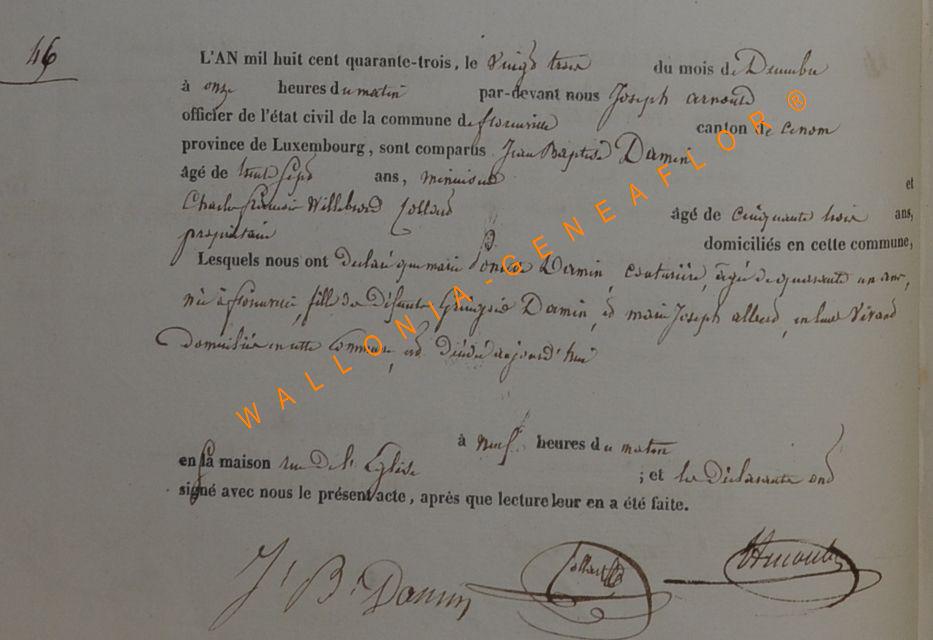 46
L'AN mil huit cent quarante-trois, le Vingt trois du mois de Decembre
à onze heures du matin par-devant nous Joseph arnould
officier de l'état civil de la commune de florenville canton de
province de Luxembourg, sont comparus Jean Baptiste Damin
âgé de trente sept ans, menuisier et
Charles françois Willebrord Collard âgé de Cinquante trois ans,
propriétaire domiciliés en cette commune,
Lesquels nous ont declaré que marie Damin, couturière, agée de quarante un ans,
née à florenville, fille de Défunts Damin, et marie Joseph
Domiciliée en cette Commune, est Décédée aujourd'hui
à Neuf heures du matin
en sa maison rue De l'Eglise ; et les Déclarants ont
signé avec nous le présent acte, après que lecture leur en a été faite.
Jn Bte Damin Collard Arnould
WALLONIA-GENEAFLOR®